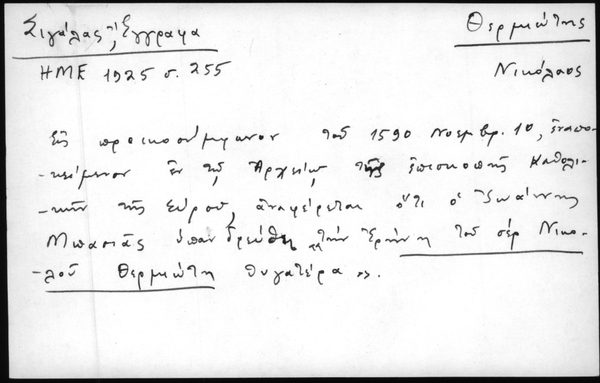 Σιγάλας, Ἔγγραφα
Θερμιώτης
ΗΜΕ 1925 σ. 255
Νικόλαος
Εἰς προικοσύμφωνον τοῦ 1590 Νοεμβρ. 10, ἐναπο-
-κείμενον ἐν τῷ Ἀρχείῳ τῆς ἐπισκοπῆς Καθολι-
-κῶν τῆς Σύρου, ἀναφέρεται ὅτι ὁ Ἰωάννης
Μπασιᾶς ὑπανδρεύθη "τὴν Ἐρήνη τοῦ σὲρ Νικο-
-λοῦ Θερμιώτη θυγατέρα".